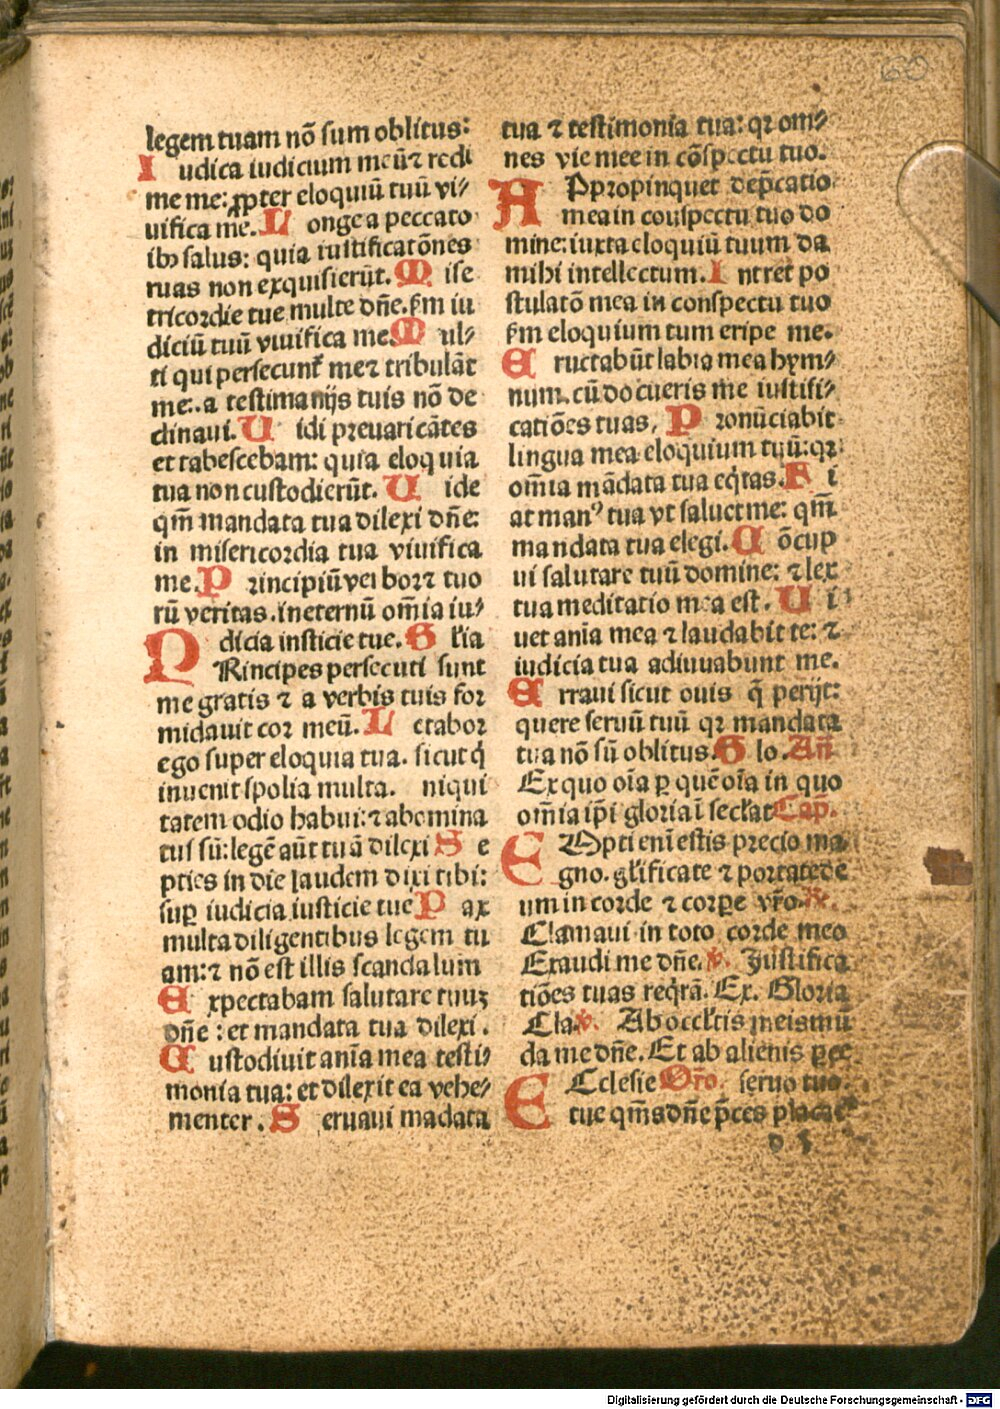 60
legem tuam nō sum oblitus:
I udica iudicium meū ⁊ redi
me me: ꝓpter eloquiū tuū vi⸗
uifica me. L onge a peccato
ibꝰ salus: quia iustificatōnes
tuas non exquisierūt. M ise
tricordie tue multe dn̄e. ẜm iu
diciū tuū viuifica me M ul⸗
ti qui persecunt̄ me ⁊ tribulāt
me: a testimanijs tuis nō de
clinaui. U idi preuaricātes
et tabescebam: quia eloquia
tua non custodierūt. U ide
qm̄ mandata tua dilexi dn̄e:
in misericordia tua viuifica
me. P rincipiū verborꝝ tuo
rū veritas. in eternū om̄ia iu⸗
dicia insticie tue. G l'ia
P Rincipes persecuti sunt
me gratis ⁊ a verbis tuis for
midauit cor meū. L etabor
ego super eloquia tua. sicut q̄
inuenit spolia multa. niqui
tatem odio habui: ⁊ abomina
tus sū: legē aūt tuā dilexi S e
pties in die laudem dixi tibi:
suꝑ iudicia iusticie tue P ax
multa diligentibus legem tu
am: ⁊ nō est illis scandalum
E xpectabam salutare tuuꝫ
dn̄e : et mandata tua dilexi .
C ustodiuit anīa mea testi⸗
monia tua: et dilexit ea vehe⸗
menter . S eruaui madata
tua ⁊ testimonia tua: qꝛ om⸗
nes vie mee in cōspectu tuo.
A Ppropinquet dep̄catio
mea in conspectu tuo do
mine: iuxta eloquiū tuum da
mihi intellectum. I ntret po
stulatō mea in conspectu tuo
ẜm eloquium tum eripe me.
E ructabūt labia mea hym⸗
num. cū docueris me iustifi⸗
catiōes tuas. P ronūciabit
lingua mea eloquium tuū: qꝛ
om̄ia mādata tua eq̄tas. F i
at manꝰ tua vt saluet me: qm̄
mandata tua elegi. C ōcup
ui salutare tuū domine: ⁊ lex
tua meditatio mea est. U i
uet anīa mea ⁊ laudabit te: ⁊
iudicia tua adiuuabunt me.
E rraui sicut ouis q̄ perijt:
quere seruū tuū qꝛ mandata
tua nō sū oblitus. G lo. An̄
Ex quo oīa ꝑ quē oīa in quo
om̄ia ip̄i gloria ī secl'a Cap̄.
E Mpti enī estis precio ma
gno. gl'ificate ⁊ portate de
um in corde ⁊ corꝑe vr̄o. ℟.
Clamaui in toto corde meo
Exaudi me dn̄e. ℣. Justifica
tiōes tuas reqr̄a. Ex. Gloria
Cla ℣. Ab occl'tis meis mū
da me dn̄e. Et ab alienis ꝑce
Or̄o. seruo tuo.
E Cclesie
tue qm̄s dn̄e p̄ces placat'